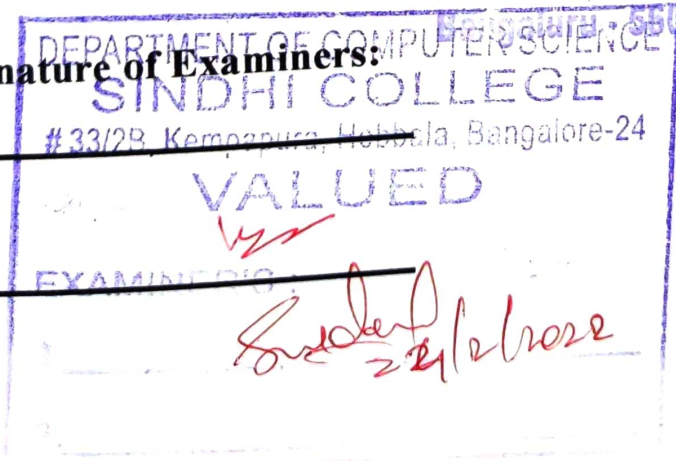 Bengaluru - 560
nature of Examiners:
DEPARTMENT OF COMPUTER SCIENCE
SINDHI COLLEGE
# 33/2B, Kempapura, Hebbala, Bangalore-24
VALUED
EXAMINER'S :
/2/2022